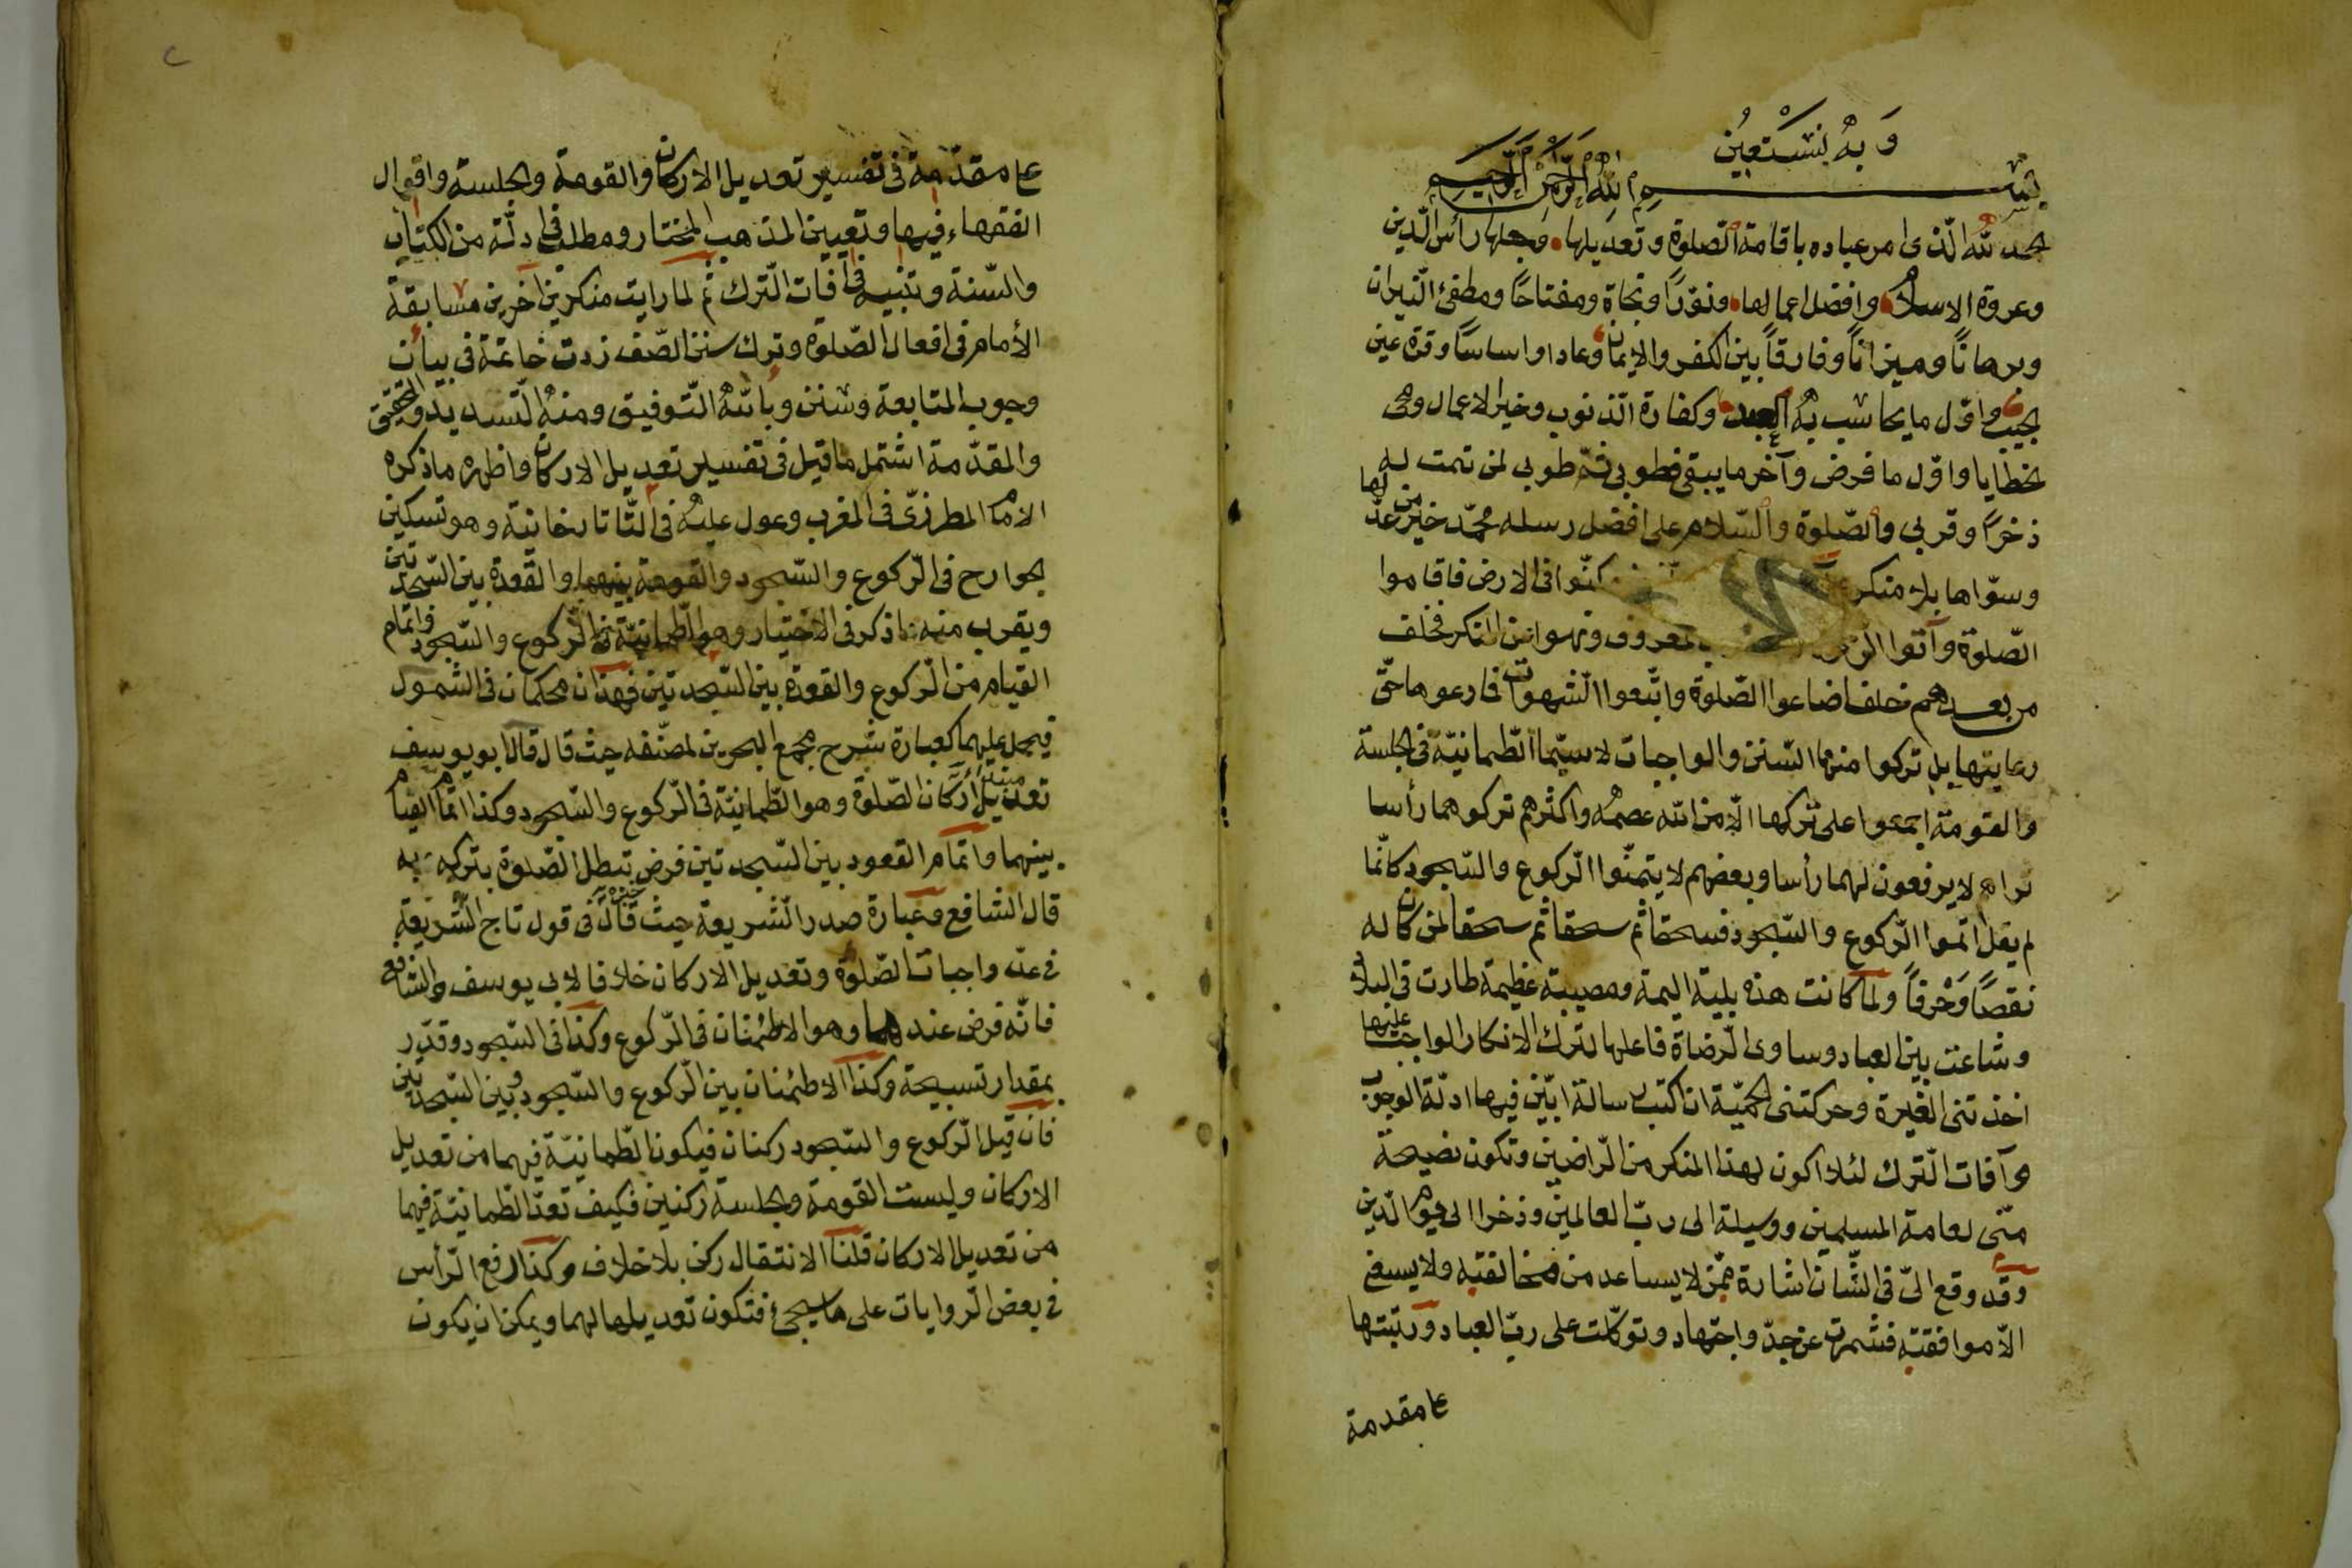 وَبِهِ نَسْتَعِيْنُ
بسم الله الرحمن الرحيم
الحمد لله الذى امر عباده باقامة الصلوة وتعديلها وجعلها رأس الدين
وعروة الاسلام وافضل اعمالها ونورًا ونجاة ومفتاحًا ومطفئ النيران
وبرهانًا وميزانًا وفارقًا بين الكفر والايمان وعمادا واساسًا وقرة عين
واول ما يحاسب به العبد وكفارة الذنوب وخير الاعمال
الخطايا واول ما فرض وآخر ما يبقى فطوبى ثم طوبى لمن تمت له
ذخرًا وقربى والصلوة والسلام على افضل رسله محمد خير من عدّلها
وسوّاها بلا منكر فى الارض فاقاموا
الصلوة وآتوا المعروف ونهوا عن المنكر فخلف
من بعدهم خلف اضاعوا الصلوة واتبعوا الشهوات فما رعوها حقّ
رعايتها بل تركوا منها السنن والواجبات لا سيّما الطمانيّة فى الجلسة
والقومة اجمعوا على تركها الا من الله عصمه واكثرهم تركوهما رأسا
تراهم لا يرفعون لهما رأسا وبعضهم لا يتمّوا الركوع والسجود كانّما
لم يقل اتموا الركوع والسجود فسحقا ثم سحقا ثم سحقا لمن كان له
نقصًا وَخرقاً ولما كانت هذه بلية اليمة ومصيبة عظيمة طارت فى البلاد
وشاعت بين العباد وساوى الرضاة فاعلها لترك الانكار الواجب عليها
اخذتنى الغيرة وحركتنى الحميّة ان اكتب رسالة ابيّن فيها ادلّة الوجوب
وآفات الترك لئلا اكون لهذا المنكر من الراضين وتكون نصيحة
منّى لعامة المسلمين ووسيلة الى ربّ العالمين وذخرا الى يوم الدين
وقد وقع الىّ فى الشان اشارة ممّن لا يساعد من مخالفته ولا يسع
الا موافقته فشمرت عن جدّ واجتهاد وتوكّلت على ربّ العباد ورتبتها
عا مقدمة
عا مقدّمة فى تفسير تعديل الاركان والقومة والجلسة واقوال
الفقهاء فيها وتعيين المذهب المختار ومطلب فى ادلّة من الكتاب
والسّنة وتنبيه فى آفات الترك ثم لما رايت منكرين اخرين مسابقة
الأمام فى افعال الصّلوة وترك سنن الصّف زدت خاتمة فى بيان
وجوب المتابعة وسنن وبالله التوفيق ومنه التسديد والتحقيق
والمقدّمة اشتمل ما قيل فى تفسير تعديل الاركان واظهره ما ذكره
الامام المطرزىّ فى المغرب وعول عليه فى التّاتارخانيّة وهو تسكين
الجوارح فى الركوع والسّجود والقومة بينهما والقعدة بين السّجدتين
ويقرب منه ما ذكر فى الاختيار وهو الطمانيّة فى الركوع والسّجود واتمام
القيام من الركوع والقعدة بين السّجدتين فهذان محكمان فى الشمول
فيحمل عليهما كعبارة شرح مجمع البحرين لمصنّفه حيث قال قال ابو يوسف
تعديل اركان الصّلوة وهو الطمانيّة فى الركوع والسّجود وكذا اتمام القيام
بينهما واتمام القعود بين السّجدتين فرض تبطل الصّلوة بتركه به
قال الشافعى وعبارة صدر الشريعة حيث قال فى قول تاج الشريعة
فى عدّ واجبات الصّلوة وتعديل الاركان خلافا لابى يوسف والشافعى
فانّه فرض عندهما وهو الاطمئنان فى الركوع وكذا فى السّجود وقدّر
بمقدار تسبيحة وكذا الاطمئنان بين الركوع والسّجود وبين السّجدتين
فان قيل الركوع والسّجود ركنان فيكون الطمانيّة فيهما من تعديل
الاركان وليست القومة والجلسة ركنين فكيف تعدّ الطمانيّة فيهما
من تعديل الاركان قلنا الانتقال ركن بلا خلاف وكذا رفع الرأس
فى بعض الروايات على ما سيجئ فتكون تعديلها لهما ويمكن ان يكون